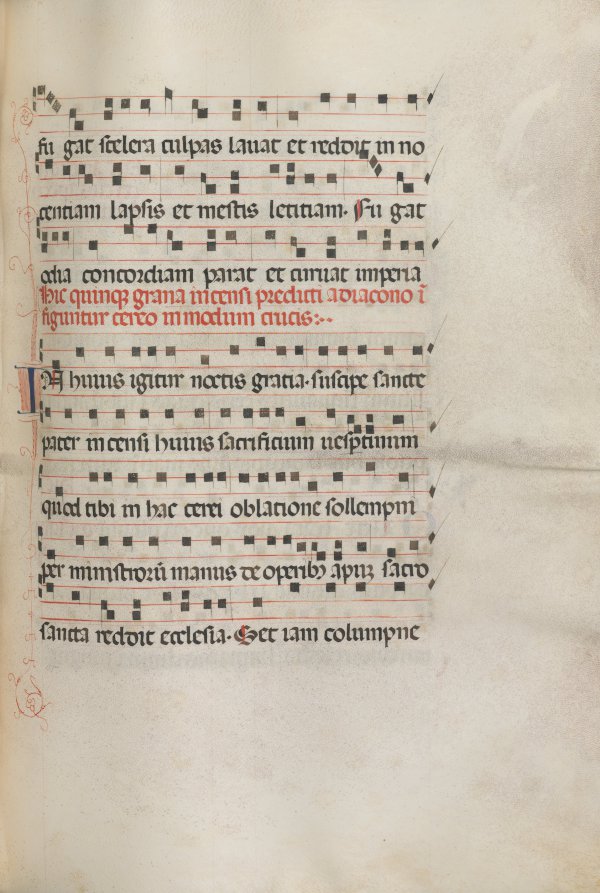 fu gat scelera culpas lauat et reddit in no
centiam lapsis et mestis letitiam. Fu gat
odia concordiam parat et curuat imperia
Hic quinqꝫ grana incensi predicti a diacono ī
figuntur cereo in modum crucis:··
IN huius igitur noctis gratia. suscipe sancte
pater incensi huius sacrificium uesptinum
quod tibi in hac cerei oblatione sollempni
per ministrorū manus de operibꝫ apuꝫ sacro
sancta reddit ecclesia. Set iam columpne